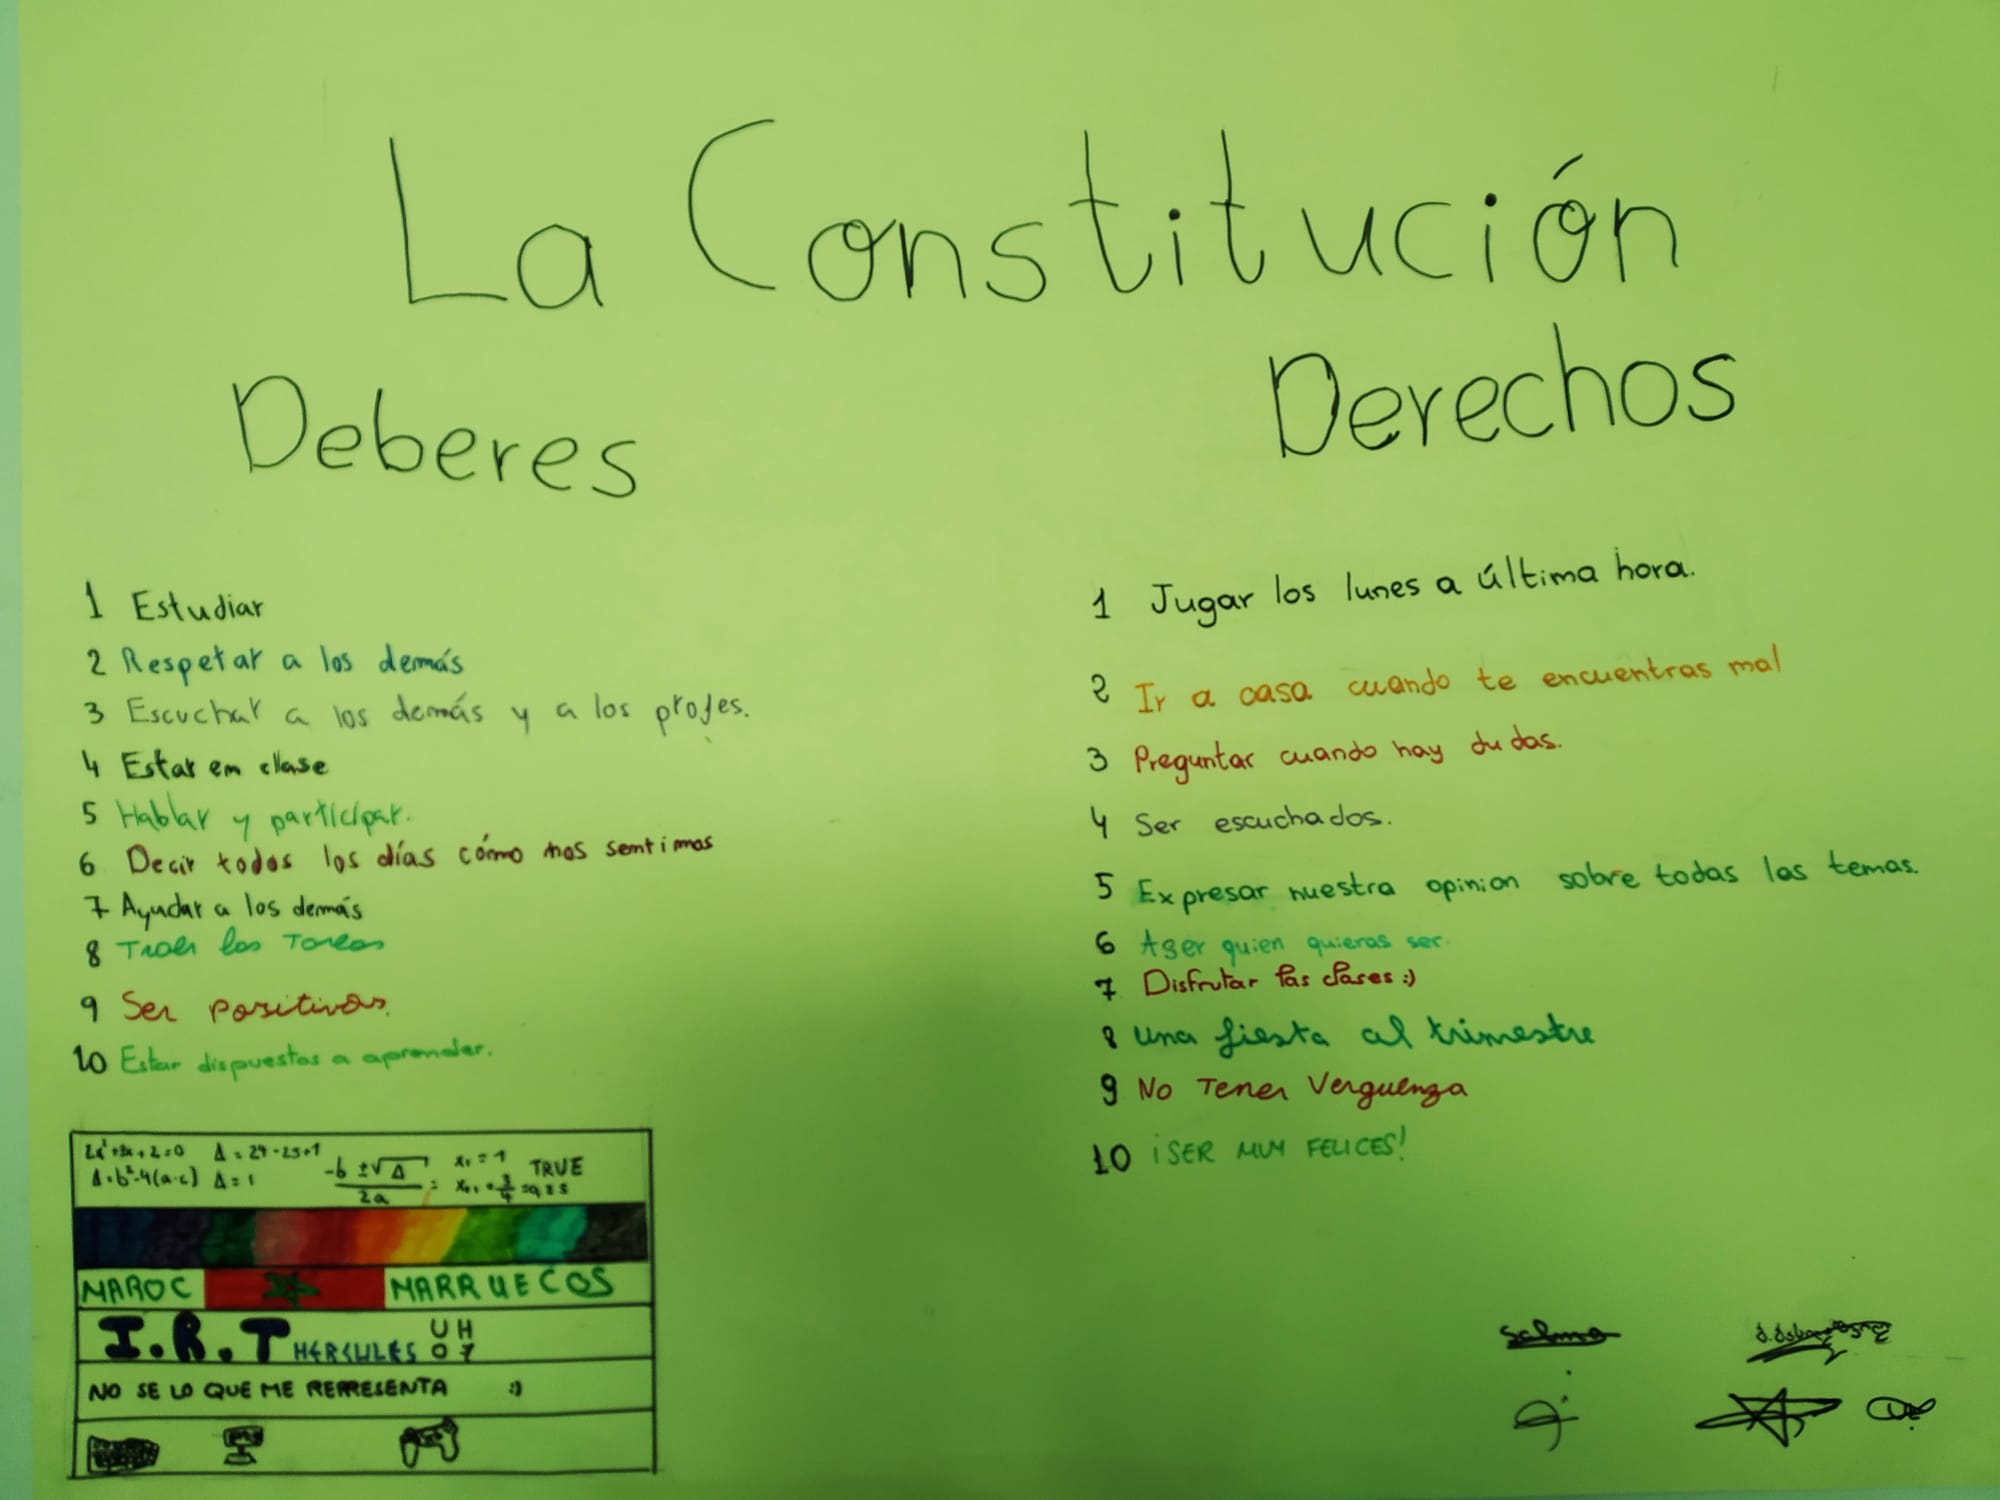 La Constitución
Deberes
1 Estudiar
2 Respetar a los demás
3 Escuchar a los demás y a los profes.
4 Estar en clase
5 Hablar y participar.
6 Decir todos los días cómo nos sentimos
7 Ayudar a los demás
8 Traer las Tareas
9 Ser positivos.
10 Estar dispuestos a aprender.
Derechos
1 Jugar los lunes a última hora.
2 Ir a casa cuando te encuentras mal
3 Preguntar cuando hay dudas.
4 Ser escuchados.
5 Expresar nuestra opinion sobre todas los temas.
6 A ser quien quieras ser.
7 Disfrutar las clases :)
8 Una fiesta al trimestre
9 No Tener Verguenza
10 ¡SER MUY FELICES!
Δ = 24-25+1
Δ = b²-4(a·c) Δ = 1
-b ±√Δ
2a
x₁ = 1
TRUE
MAROC MARRUECOS
I.R.T HÉRCULES UH
07
NO SE LO QUE ME REPRESENTA :)
Salma